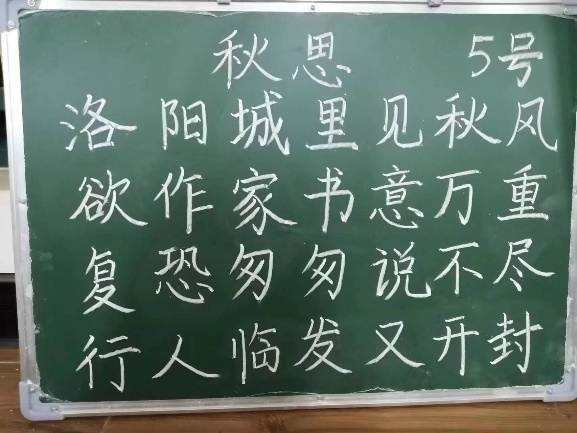 秋思 5号
洛阳城里见秋风
欲作家书意万重
复恐匆匆说不尽
行人临发又开封